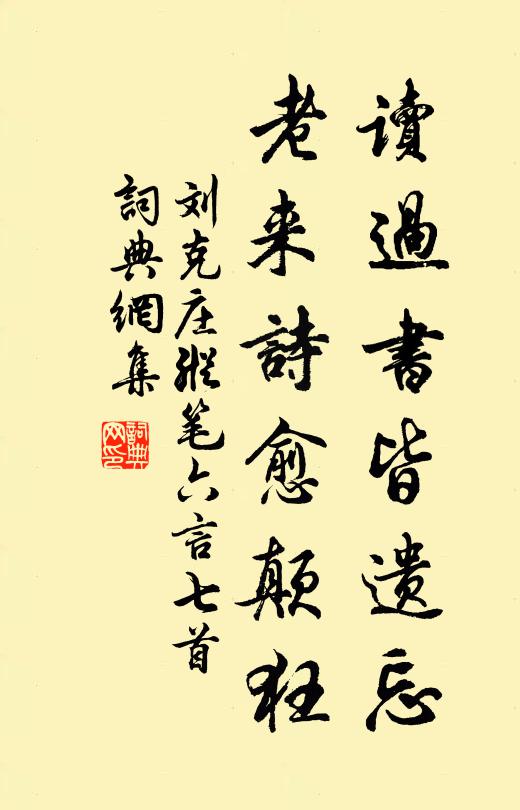 讀過書皆遺忘
老来詩愈顛狂
刘克庄縱笔六言七首
詞典網集
詞典
网印